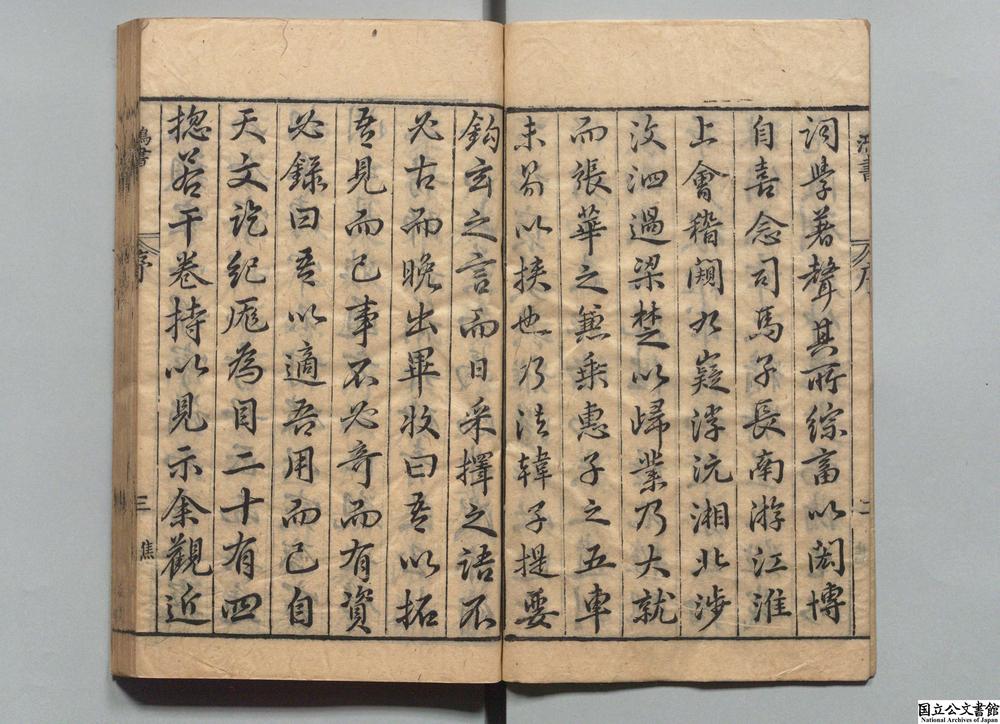 詞學著聲其所綜畜以閎博
自喜念司馬子長南游江淮
上會稽闚九嶷浮沅湘北涉
汶泗過梁楚以歸業乃大就
而張華之兼乘惠子之五車
未易以挾也乃法韓子提要
鈎玄之言而日采擇之語不
必古而晚出畢收曰吾以拓
吾見而已事不必奇而有資
必錄曰吾以適吾用而已自
天文訖紀厖為目二十有四
揔若干卷持以見示余觀近
鴻書
序
三
焦
国立公文書館
National Archives of Japan